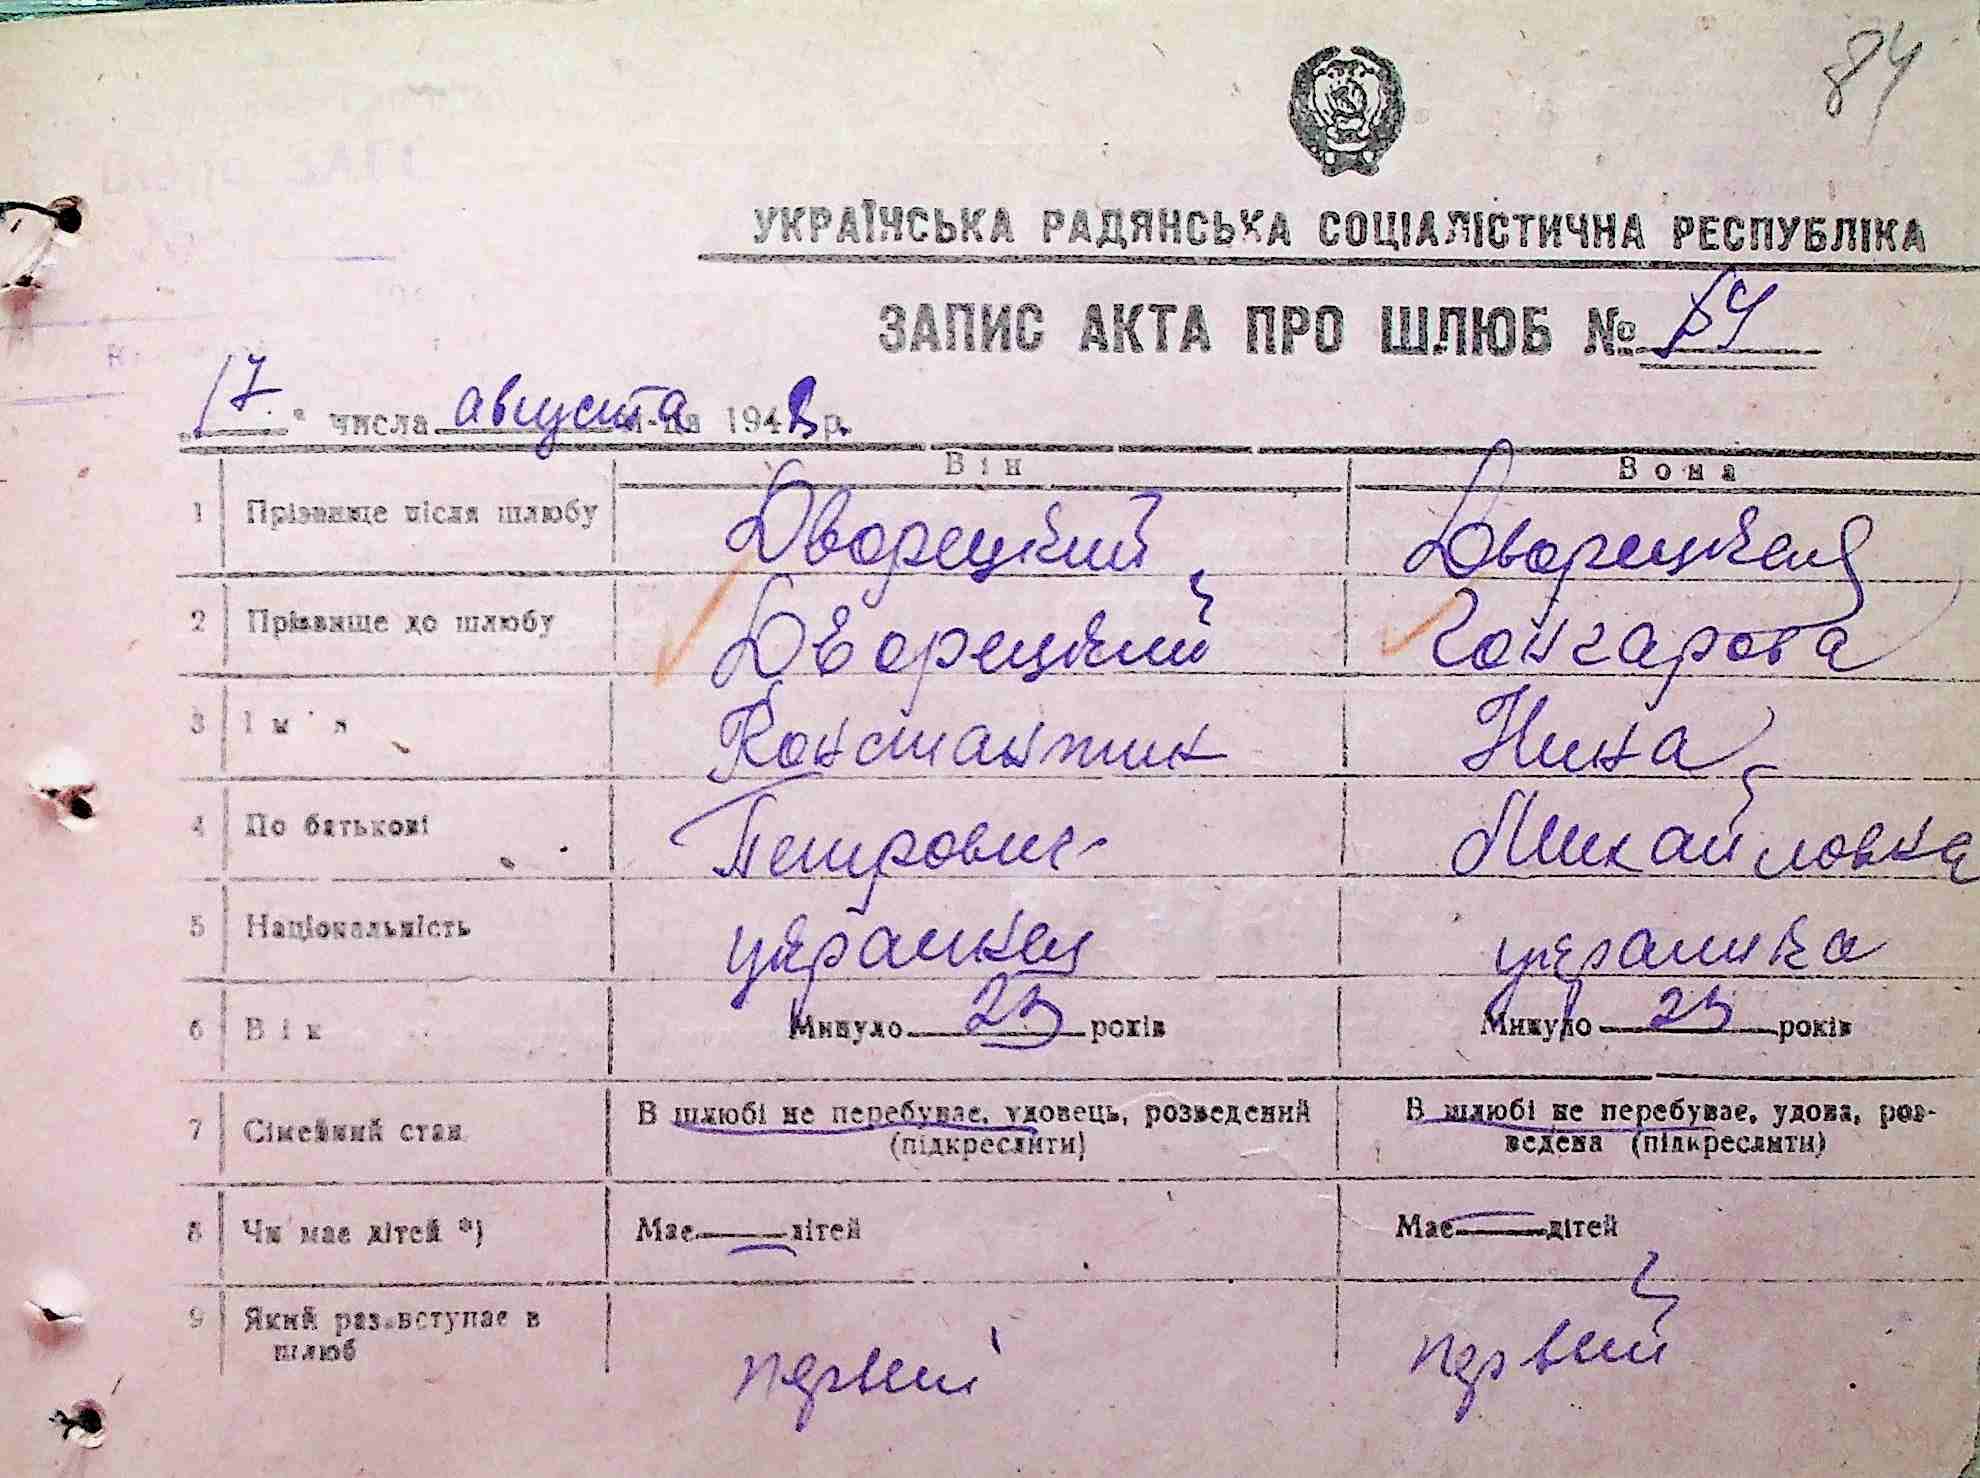 84
УКРАЇНСЬКА РАДЯНСЬКА СОЦІАЛІСТИЧНА РЕСПУБЛІКА
ЗАПИС АКТА ПРО ШЛЮБ № 84
„17" числа августа м-ця 194 р.
Він Вона
1 Прізвище після шлюбу Дворецкий Дворецкая
2 Прізвище до шлюбу Дворецкий Гончарова
3 Ім'я Константин Нина
4 По батькові Петрович Михайловна
5 Національність украинец украинка
6 Вік Минуло 23 років Минуло 23 років
7 Сімейний стан В шлюбі не перебуває, удовець, розведений (підкреслити) В шлюбі не перебуває, удова, роз-
ведена (підкреслити)
8 Чи має дітей *) Має — дітей Має — дітей
9 Який раз вступає в
шлюб первый первый